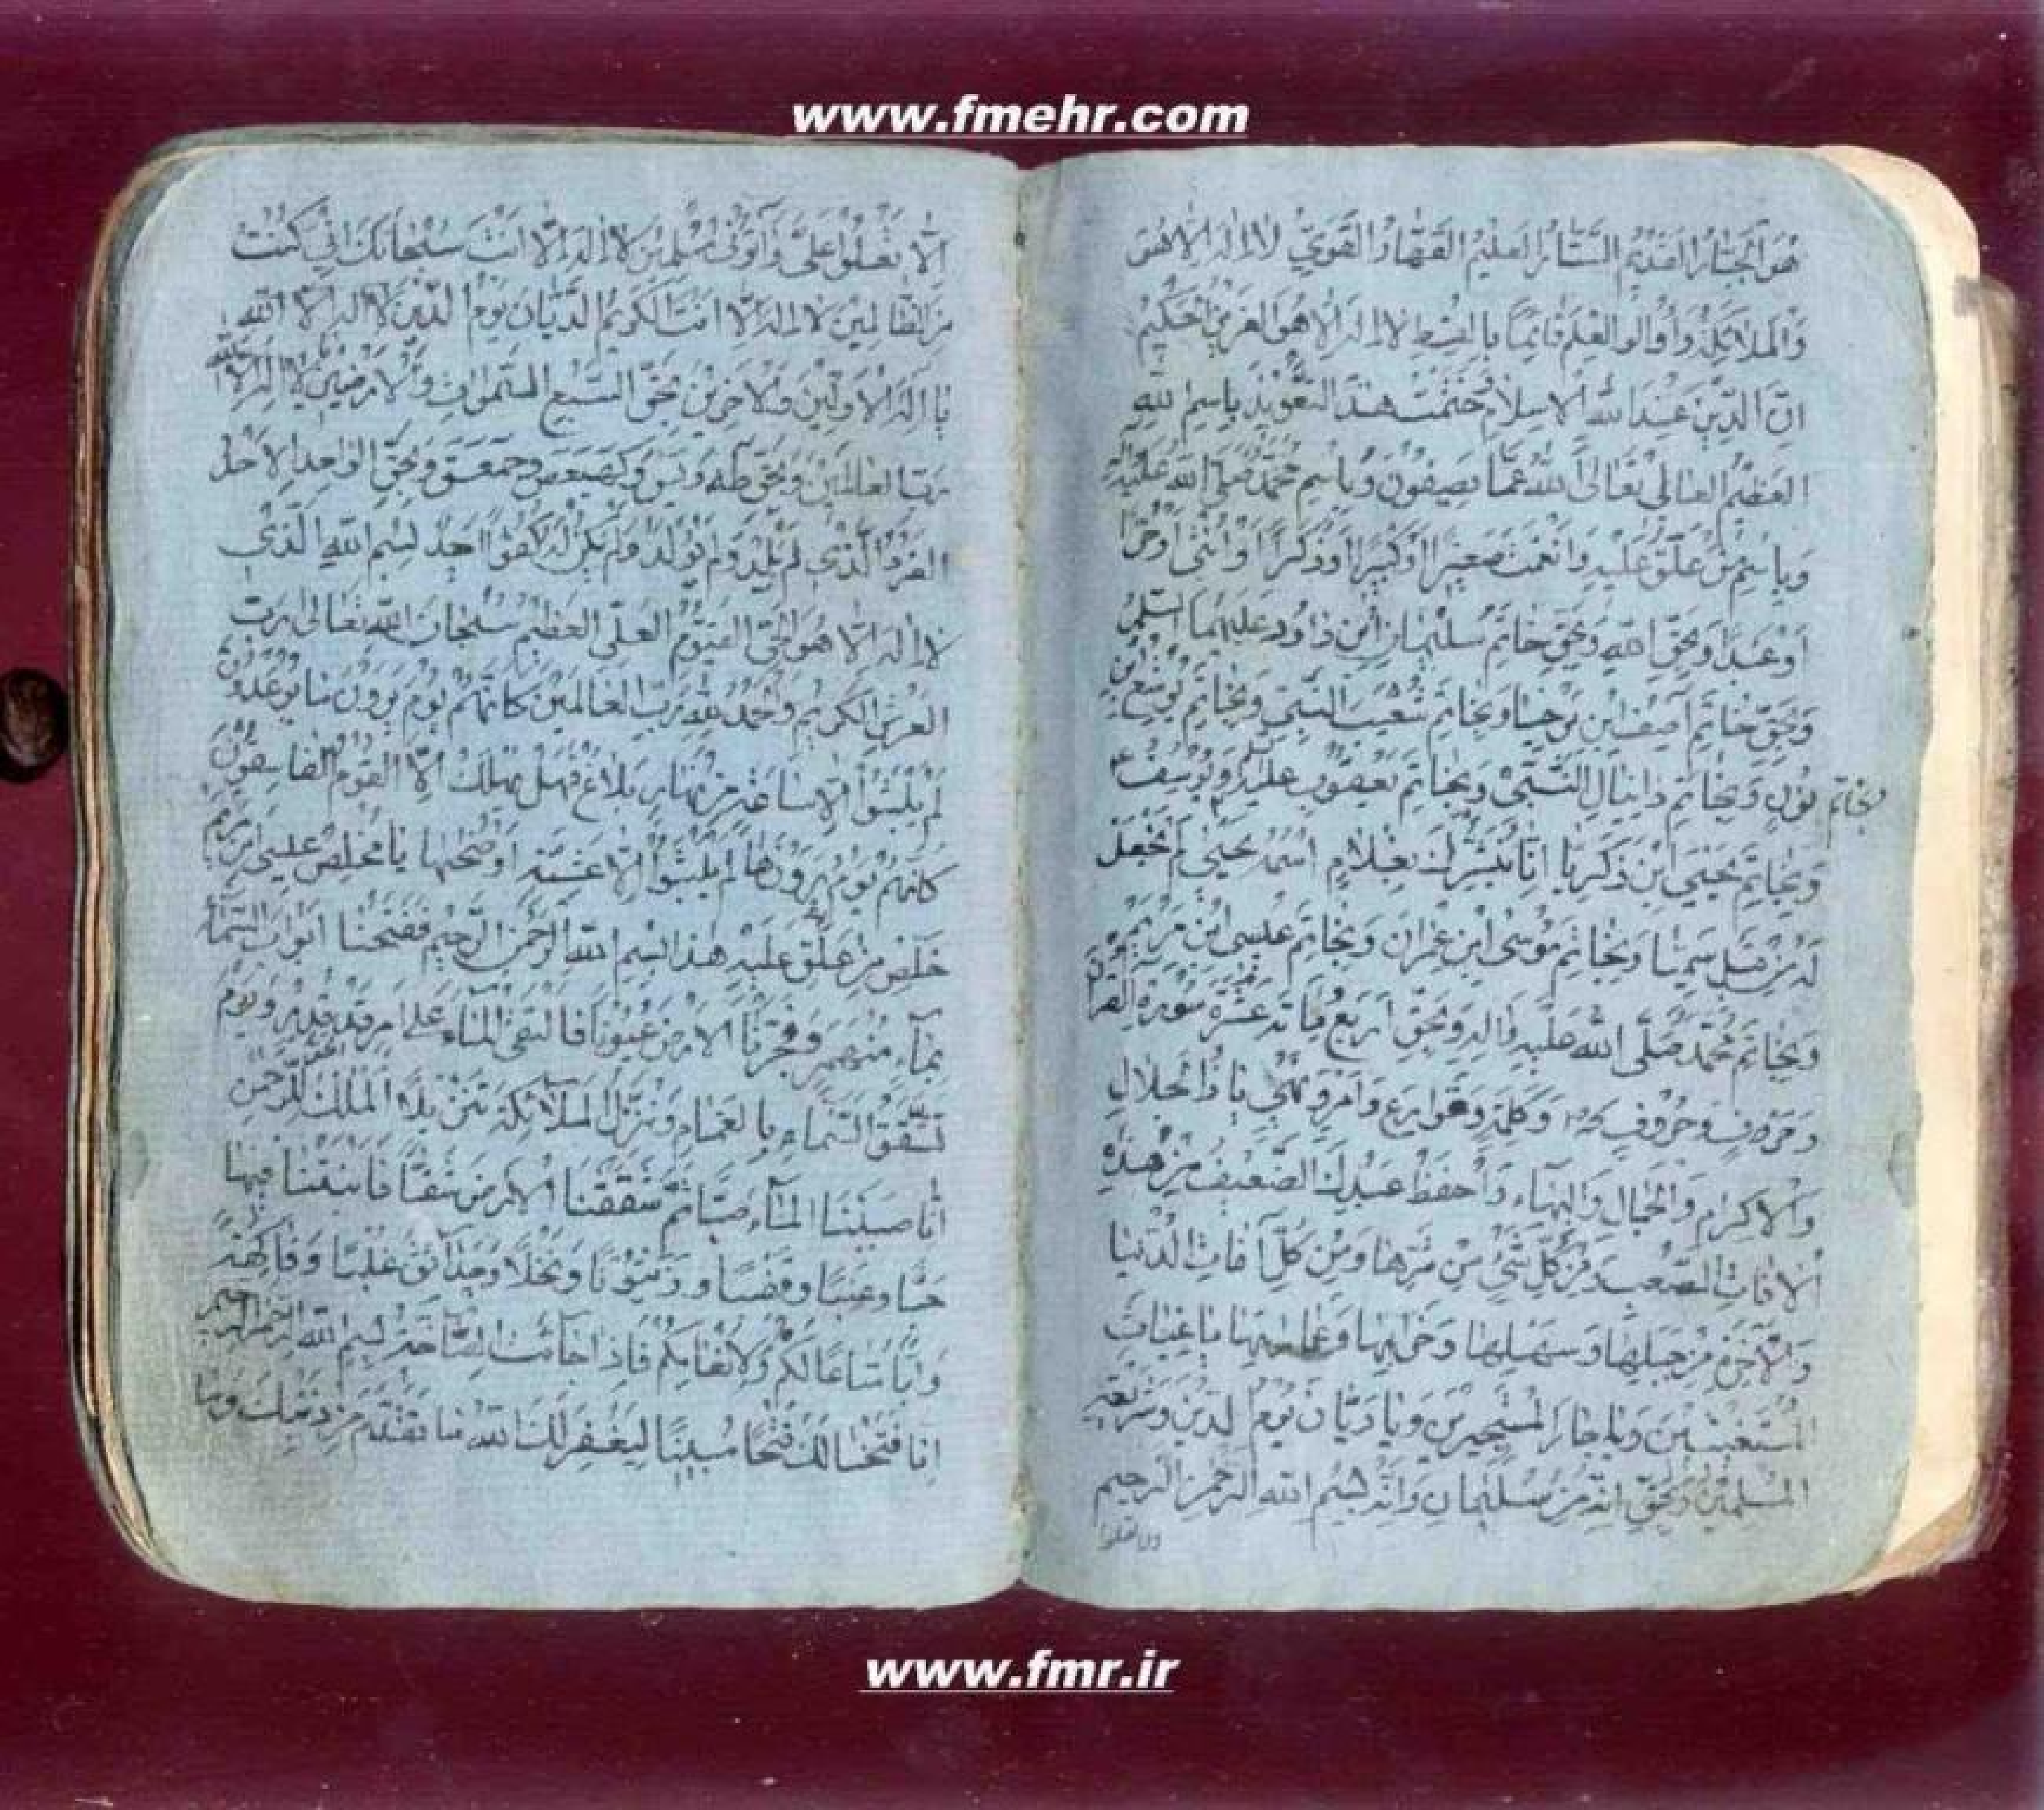 www.fmehr.com
هُوَ الجَبّارُ القَدیمُ السَّتّارُ العَلیمُ القَهّارُ القَویُّ لا اله الا هُوَ
وَالمَلائکة وَاُولُوا العِلمِ قائِماً بِالقِسطِ لا اله الا هُوَ العَزیزُ الحَکیمُ
اِنَّ الدّینَ عِندَ اللهِ الاِسلام خَتَمتُ هذَا التَّعویذَ بِاسمِ اللهِ
العَظیمِ العالی تَعالی اللهُ عَمّا یَصِفُونَ وَبِاسمِ مُحَمَّد صلی الله علیه
وَبِاسمِ مَن عَلَّقَ عَلَیهِ صَغیراً اَو کَبیراً اَو ذَکَراً اَو اُنثی اَو حُرّاً
اَو عَبداً وَبِحَقِّ الله وَبِحَقِّ خاتَمِ سُلَیمان اِبنِ داوُد عَلَیهِمَا السَّلام
وَبِحَقِّ خاتَمِ آصِف اِبنِ بَرخِیا وَبِخاتَمِ شُعَیب النَّبی وَبِخاتَمِ یُوشَع ابن
نُون وَبِخاتَمِ دانیال النَّبی وَبِخاتَمِ یَعقُوب عَلَیه وَیُوسُف
بخاتم
وَبِخاتَمِ یَحیی اِبنِ ذَکَریّا اِنّا نُبَشِّرُكَ بِغُلامٍ اسمُهُ یَحیی لَم نَجعَل
لَهُ مِن قَبلُ سَمِیّا وَبِخاتَمِ مُوسی اِبنِ عِمران وَبِخاتَمِ عیسی ابنِ مَریَم
وَبِخاتَمِ مُحَمَّد صَلَّی اللهُ عَلَیهِ وَالِهِ وَبِحَقِّ اَربَعَ مِائة عَشَرَة سُورَة القران
وَحُرُوف وَکَلِمَة وَاَمر وَنَهی یا ذَا الجَلالِ
وَالاِکرامِ وَالجَمالِ وَالبَهاء وَاحفَظ عَبدَكَ الضَّعیف مِن هذِهِ
الافاتِ الصَّعب وَمِن کُلِّ شَیءٍ مِن شَرِّها وَمِن کُلِّ آفاتِ الدُّنیا
وَالآخِرَة مِن جَبَلِها وَسَهلِها یا غِیاث
المُستَغیثینَ وَیا جارَ المُستَجیرینَ وَیا دَیّانَ یَومِ الدّین
المُسلِمینَ وَبِحَقِّ اِنَّهُ مِن سُلَیمان وَاِنَّهُ بِسمِ اللهِ الرَّحمنِ الرَّحیم
اَلّا تَعلُوا عَلَیَّ وَأتُونی مُسلِمینَ لا اله الا اَنتَ سُبحانَكَ اِنّی کُنتُ
مِنَ الظّالِمینَ لا اله الا اَنتَ الکَریمُ الدَّیّان یَومِ الدّین لا اله الا الله
یا اله الاَوَّلینَ وَالآخِرینَ بِحَقِّ السَّبعِ السَّمواتِ وَالاَرَضینَ لا اله الا الله
رب العالَمین وَبِحَقِّ طه وَیس وَکهیعص وَحمعسق وَبِحَقِّ الواحِدِ الاَحَد
الفَردِ الَّذی لَم یَلِد وَلَم یُولَد وَلَم یَکُن لَهُ کُفُواً اَحَد بِسمِ اللهِ الَّذی
لا اله الا هُوَ الحَیُّ القَیُّومُ العَلِیُّ العَظیم سُبحانَ اللهِ تَعالی رَبِّ
العَرشِ الکَریم وَالحَمدُ لِلّهِ رَبِّ العالَمین کَاَنَّهُم یَومَ یَرَونَ ما یُوعَدُونَ
لَم یَلبَثُوا اِلّا ساعَةً مِن نَهار بَلاغ فَهَل یُهلَكُ اِلّا القَومُ الفاسِقُونَ
کَاَنَّهُم یَومَ یَرَونَها لَم یَلبَثُوا اِلّا عَشِیَّةً اَو ضُحیها یا مُخَلِّصَ عیسی ابن مریم
خَلِّص مَن عَلَّقَ عَلَیهِ هذا بِسمِ اللهِ الرَّحمنِ الرَّحیم فَفَتَحنا اَبوابَ السَّماء
بِماءٍ مُنهَمِر وَفَجَّرنَا الاَرضَ عُیُوناً فَالتَقَی الماءُ عَلی اَمرٍ قَد قُدِر وَیَومَ
تَشَقَّقُ السَّماءُ بِالغَمامِ وَنُزِّلَ المَلائِکَةُ تَنزیلا المُلكُ لِلرَّحمن
اَنّا صَبَبنَا الماءَ صَبّاً ثُمَّ شَقَقنَا الاَرضَ شَقّاً فَاَنبَتنا فیها
حَبّاً وَعِنَباً وَقَضباً وَزَیتُوناً وَنَخلاً وَحَدائِقَ غُلباً وَفاکِهَةً
وَاَبّاً مَتاعاً لَکُم وَلِاَنعامِکُم فَاِذا جائَت الصّاخَّة بِسمِ اللهِ الرَّحمنِ الرَّحیم
اِنّا فَتَحنا لَكَ فَتحاً مُبیناً لِیَغفِرَ لَكَ اللهُ ما تَقَدَّمَ مِن ذَنبِكَ وَما
www.fmr.ir